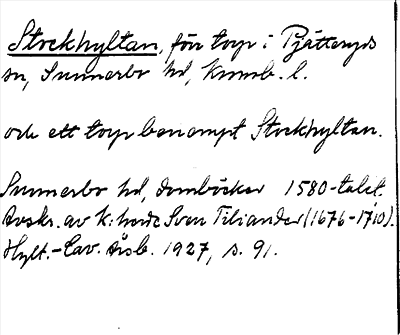 Stockhyltan, för torp i Pjätteryds
sn, Sunnerbo hd, Kronob. l.
och ett torp benämpt Stockhyltan.
Sunnerbo hd, domböcker 1580-talet.
Avskr. av k:herde Sven Tiliander (1676-1710).
Hylt.-Cav. Årsb. 1927, s. 91.